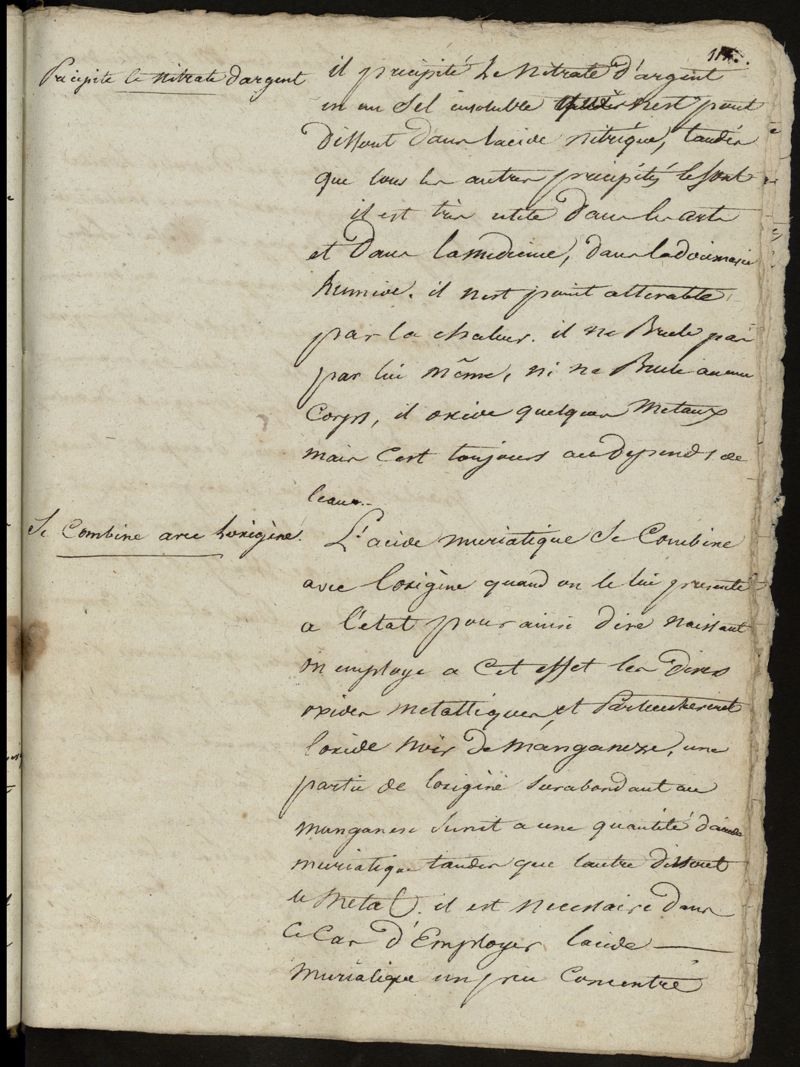 Precipite le nitrate d'argent
il precipite le nitrate d'argent
en un sel insoluble n'est point
Dissout dans lacide nitrique, tandis
que tous les autres precipités le sont
il est très utile dans les arts
et Dans la medicine, dans la docimasie
humide. il n'est point alterable
par la chaleur. il ne Brule pas
par lui même, ni ne Brule aucun
Corps, il oxide quelques Metaux
mais C'est toujours au depends de
leau..
Se Combine avec Loxigène.
L'acide muriatique Se Combine
avec l'oxigène quand on le lui presente
a l'etat pour ainsi dire naissant
on employe a cet effet les divers
oxides metalliques, et Particulierement
l'oxide noir de manganeze, une
partie de loxigène surabondant au
manganese s'unit a une quantité d'acide
muriatique tandis que lautre dissout
le Metal. il est necessaire dans
ce Cas d'Employer lacide
muriatique un peu Concentré